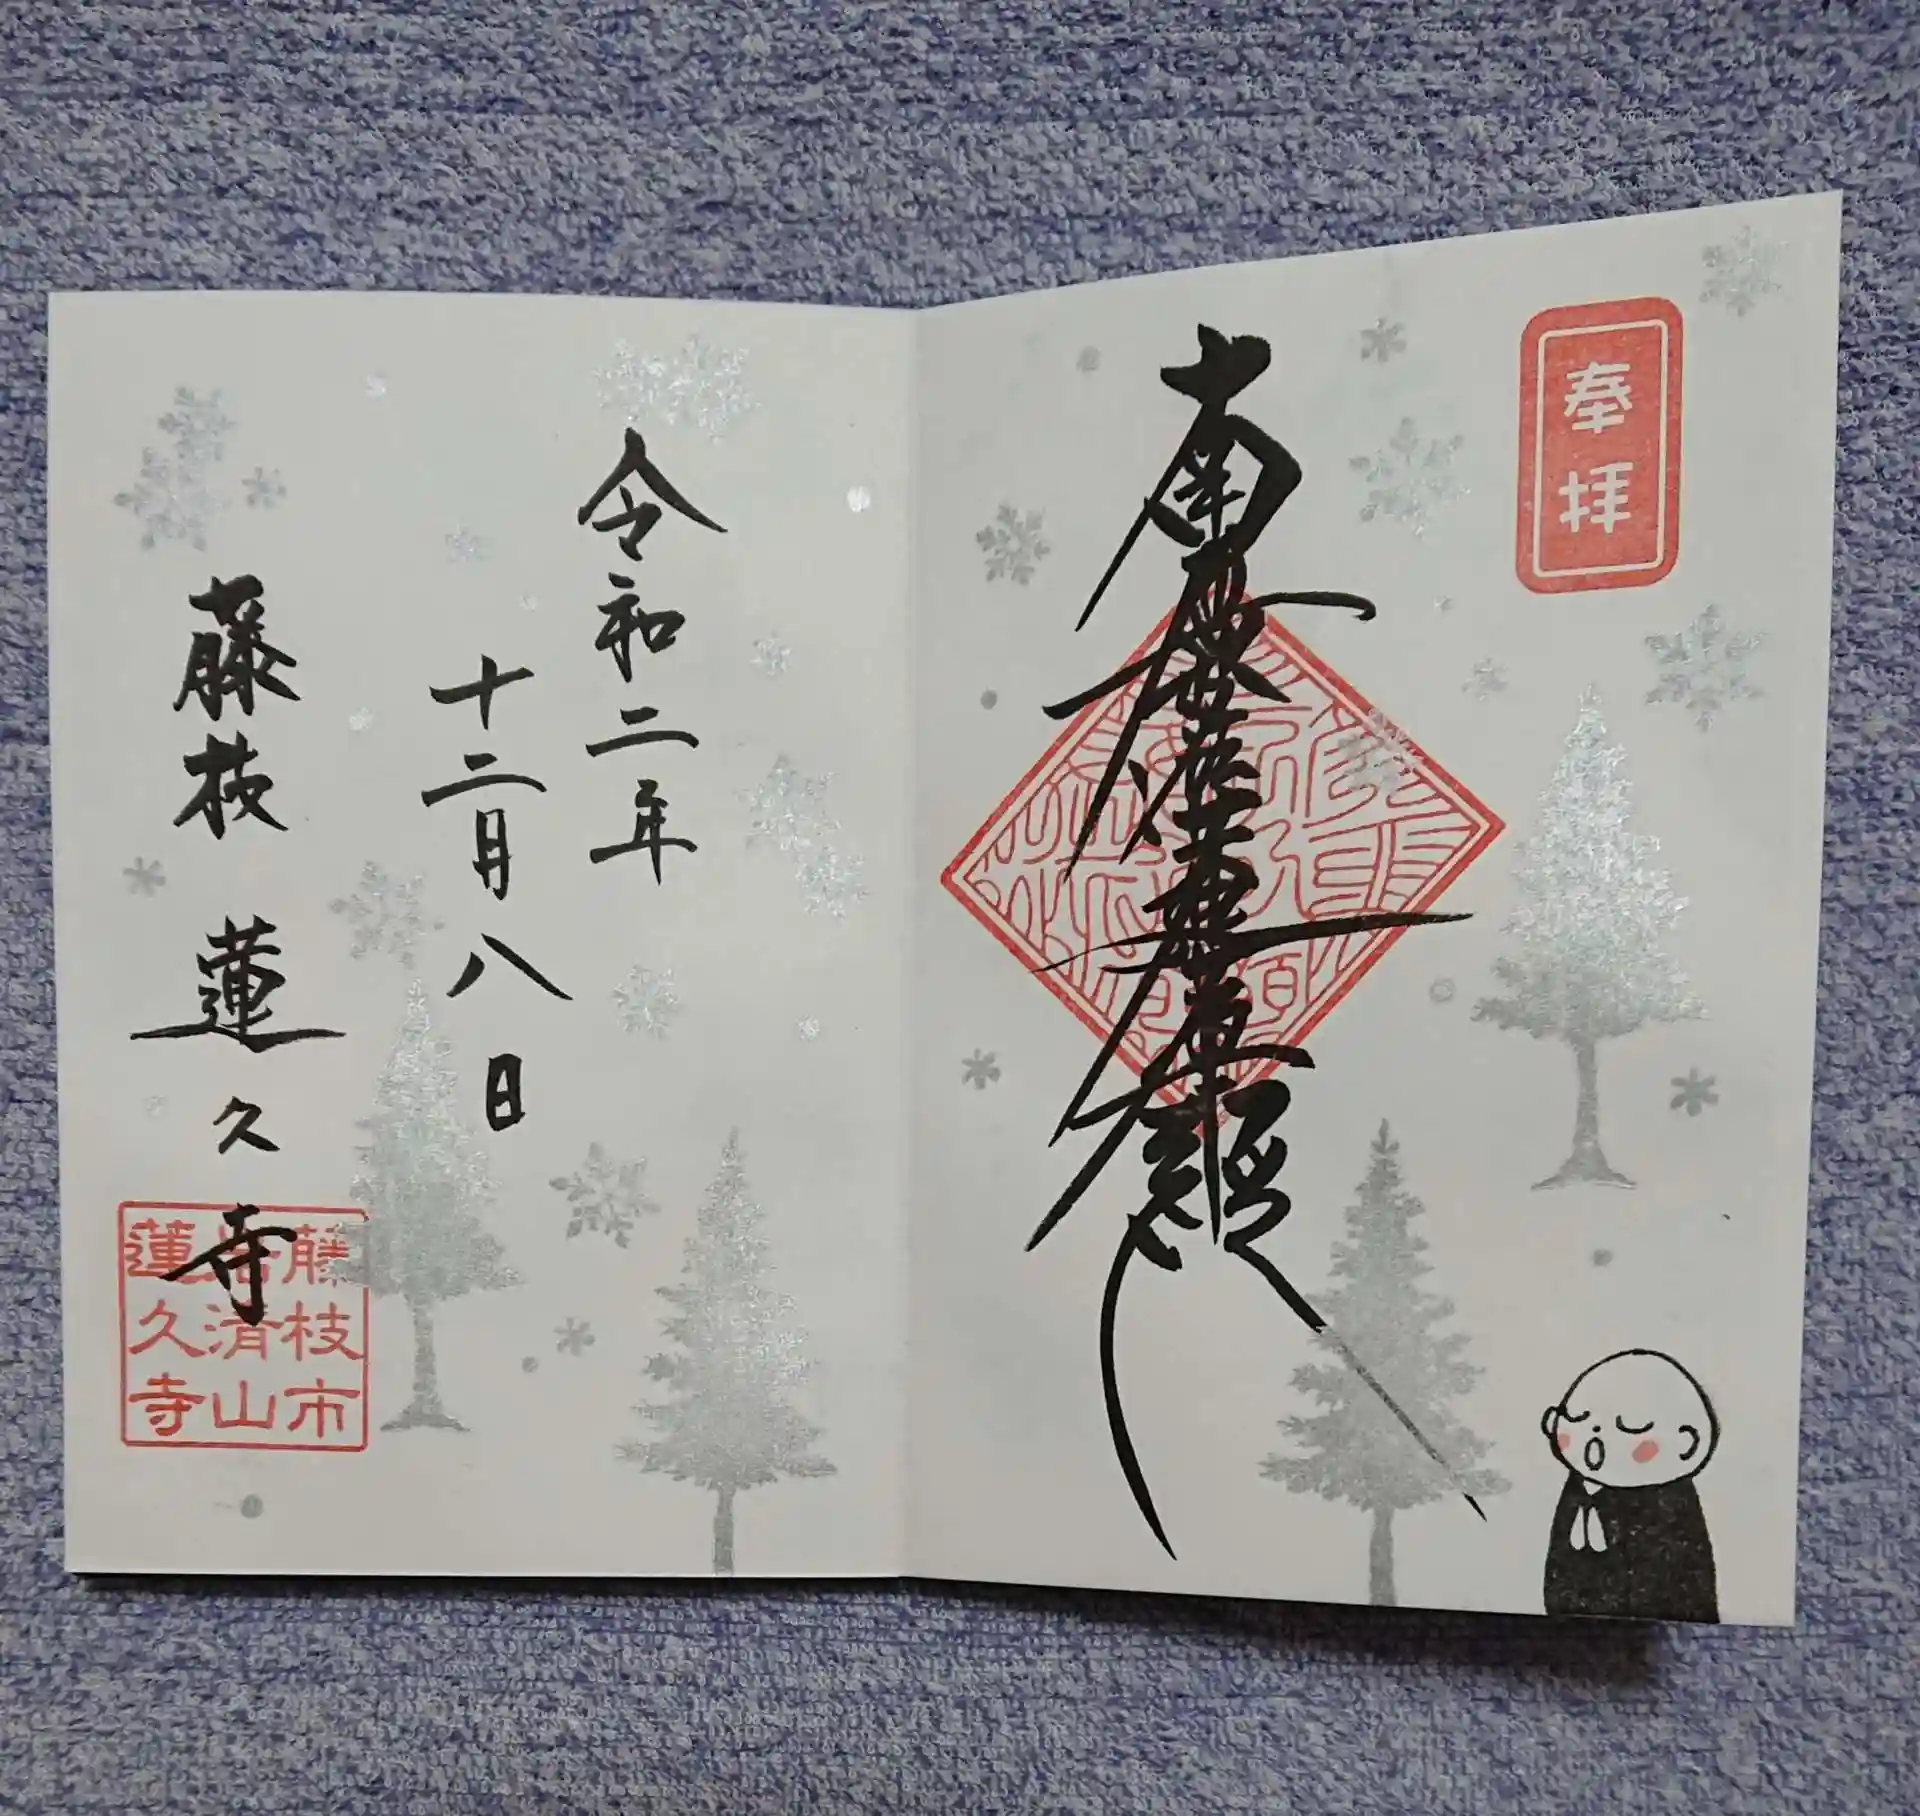 奉拝
南無妙法蓮華経
令和二年
十二月八日
藤枝 蓮久寺
藤枝市
岳清山
蓮久寺